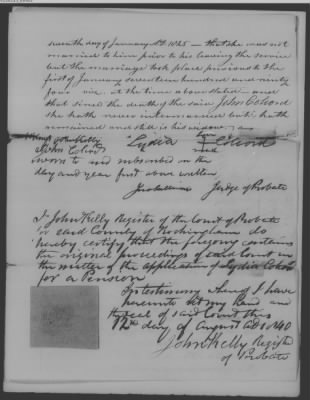 seventh day of January A.D. 1825 — that she was not
married to him prior to his leaving the service
but the marriage took place previous to the
first of January seventeen hundred and ninety
four viz. at the time above stated — and
that since the death of the said John Colcord
she hath never intermarried but hath
remained and still is his widow.
Witness John Kelly Lydia her mark Colcord
John
Sworn to and subscribed on the
day and year first above written
Judge of Probate
I John Kelly Register of the Court of Probate
for said County of Rockingham do
hereby certify that the foregoing contains
the original proceedings of said Court in
the matter of the application of Lydia Colcord
for a Pension
In testimony whereof I have
hereunto set my hand and
the seal of said Court this
12th day of August A.D. 1840
John Kelly Register
of Probate